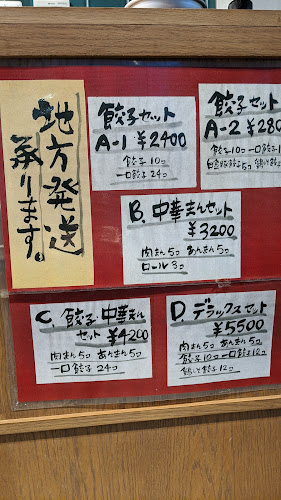 地方発送
承ります。
餃子セット
A-1 ¥2400
餃子10コ
一口餃子24コ
餃子セット
A-2 ¥280
餃子10コ 一口餃子
B. 中華まんセット
¥3200
肉まん5コ あんまん5コ
ロール3コ
C. 餃子 中華まん
セット ¥4200
肉まん5コ あんまん5コ
一口餃子24コ
D. デラックスセット
¥5500
肉まん5コ あんまん5コ
餃子10コ 一口餃子12コ
餃子12コ